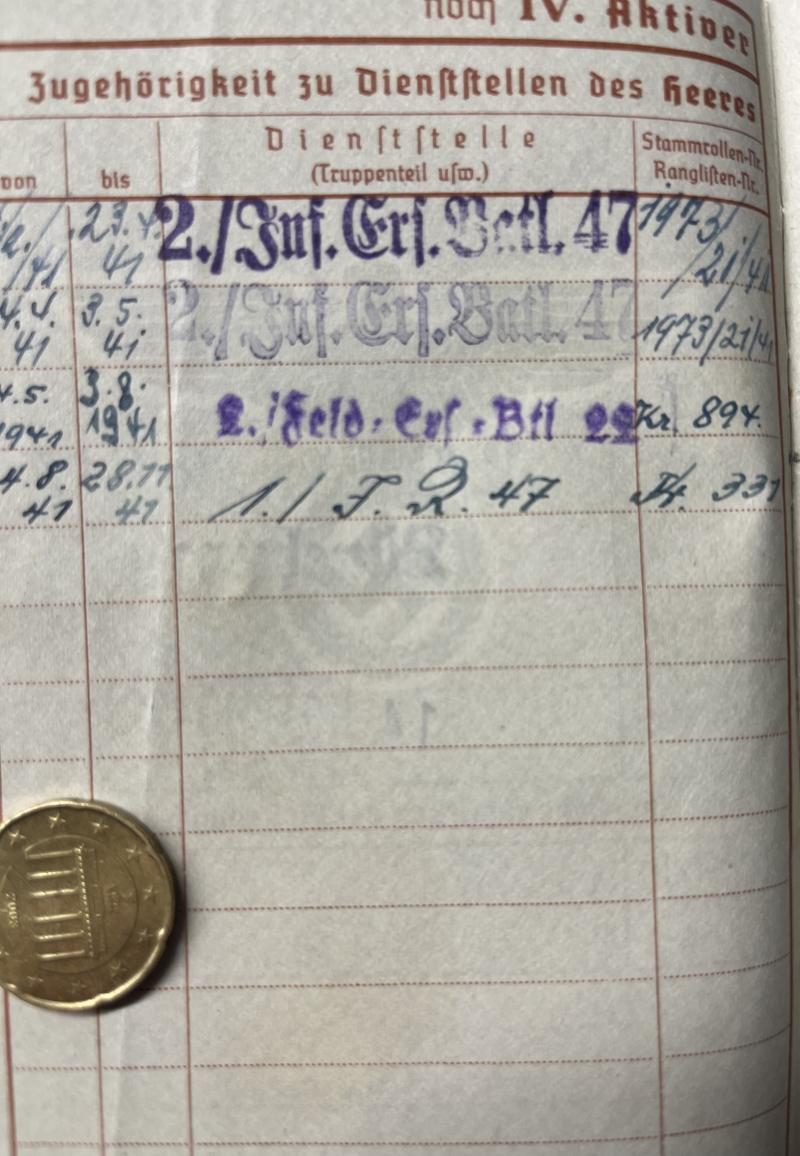 noch IV. Aktiver
Zugehörigkeit zu Dienststellen des Heeres
von bis Dienststelle (Truppenteil usw.) Stammrollen-Nr. Ranglisten-Nr.
41 23.4. 41 2./Inf. Ers. Batl. 47 1973/ /21/41
4.4. 41 3.5. 41 2./Inf. Ers. Batl. 47 1973/21/41
4.5. 1941 3.8. 1941 2./Feld-Ers.-Btl 22 Kr. 894.
4.8. 41 28.11 41 1./ J. R. 47 Nr. 331